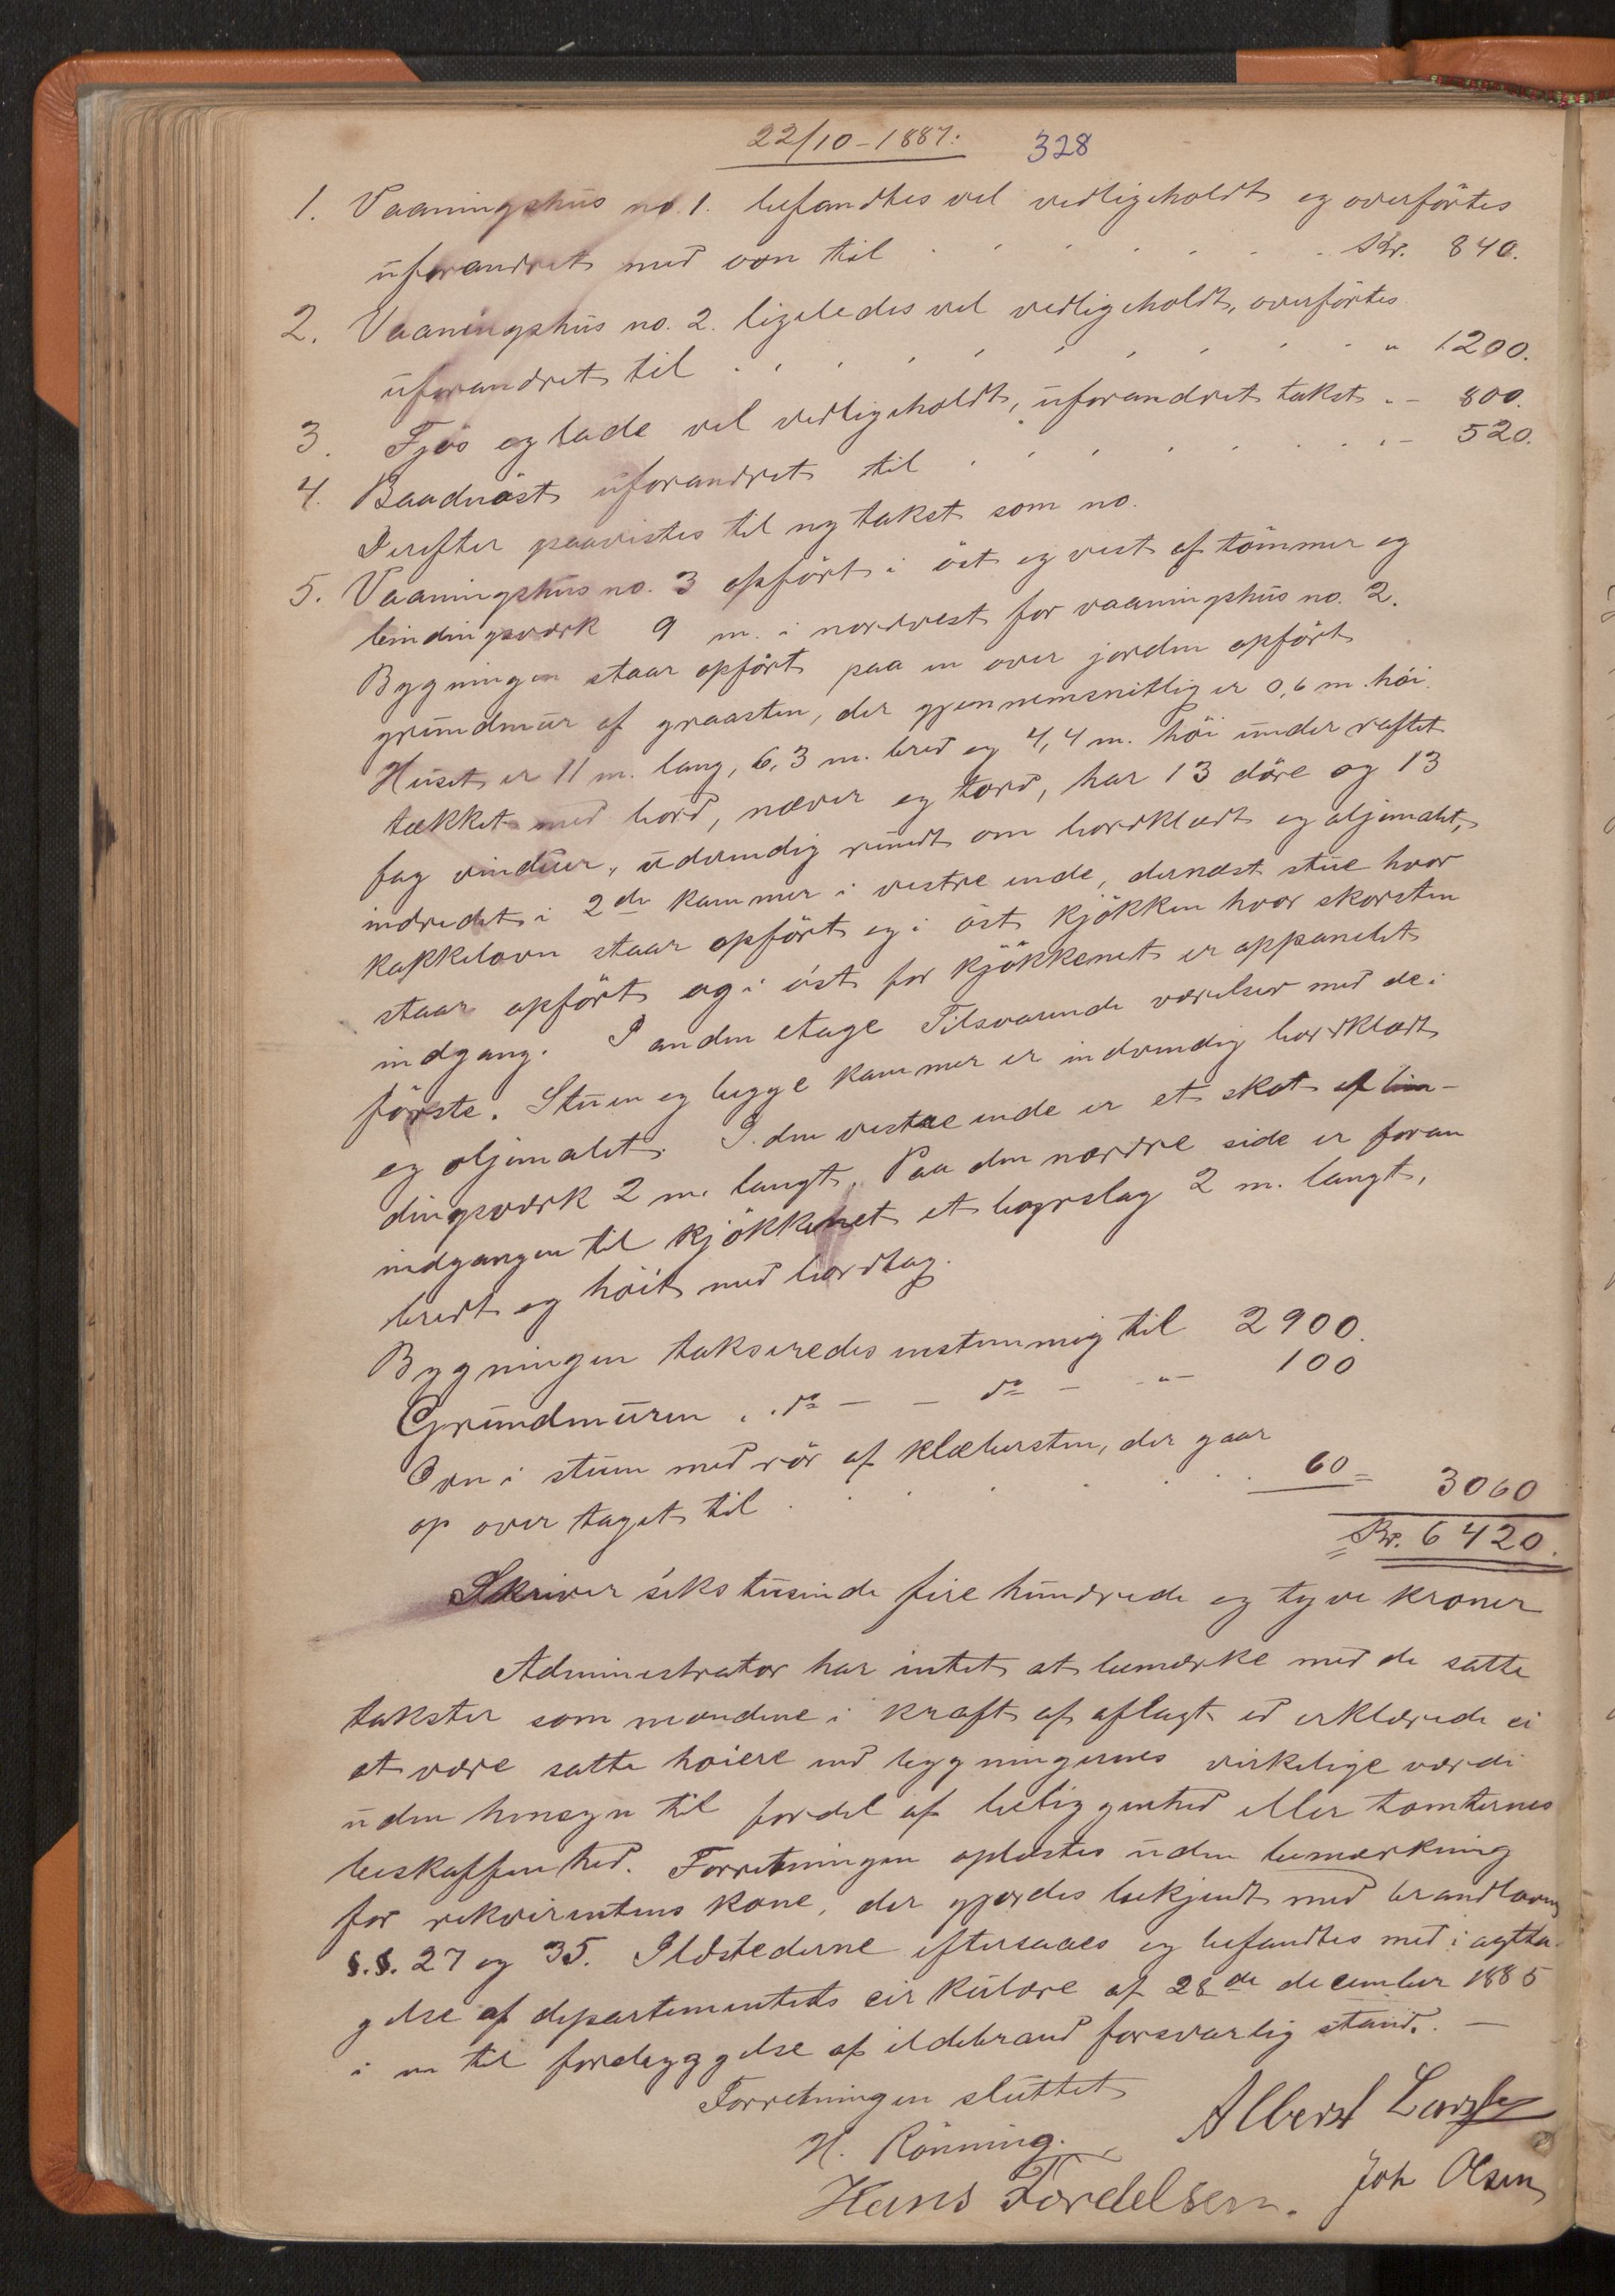 22/10-1887. 328
1. Vaaningshus no. 1. befandtes vel vedligeholdt og overførtes
uforandret med ovn til . . . . . . Kr. 840.
2. Vaaningshus no. 2. ligeledes vel vedligeholdt, overførtes
uforandret til . . . . . . . . . . " 1200.
3. Fjøs og lade vel vedligeholdt, uforandret takst . - 800.
4. Baadnøst uforandret til . . . . . . . . - 520.
Derefter paavistes til ny takst som no.
5. Vaaningshus no. 3 opført i øst og vest af tømmer og
bindingsværk 9 m. i nordvest for vaaningshus no. 2.
Bygningen staar opført paa en over jorden opført
grundmur af graasten, der gjennemsnitlig er 0,6 m. høi.
Huset er 11 m. lang, 6,3 m. bred og 4,4 m. høi under raftet
tækket med bord, næver og torv, har 13 døre og 13
fag vinduer, udvendig rundt om bordklædt og oljemalt,
indredet i 2de kammer i vestre ende, dernæst stue hvor
kakkelovn staar opført og i øst kjøkken hvor skorsten
staar opført og i øst for kjøkkenet er oppanelet
indgang. I anden etage Tilsvarende værelser med de i
første. Stuen og begge kammer er indvendig bordklædt
og oljemalet. I den vestre ende er et skot af bin-
dingsværk 2 m. langt. Paa den nordre side er foran
indgangen til kjøkkenet et bogrslag 2 m. langt,
bredt og høit med bordtag.
Bygningen takseredes enstemmig til 2900.
Grundmuren . . do - - do - "- 100
Ovn i stuen med rør af klæbersten, der gaar
op over taget til . . . . . . . 60 = 3060
Kr. 6420.
Skriver seks tusinde fire hundrede og tyve kroner
Administrator har intet at bemærke med de satte
takster som mændene i kraft af aflagt ed erklærede ei
at være satte høiere end bygningernes virkelige værdi
uden hensyn til fordel af beliggenhed eller tomternes
beskaffenhed. Forretningen oplæstes uden bemærkning
for rekvirentens kone, der gjordes bekjendt med brandlovens
§.§. 27 og 35. Ildstederne eftersaaes og befandtes med iagtta-
gelse af departementets cirkulære af 28de december 1885
i en til forebyggelse af ildebrand forsvarlig stand. -
Forretningen sluttet
H. Rønning. Albert Larssen
Hans Tordelsen. Joh Olsen